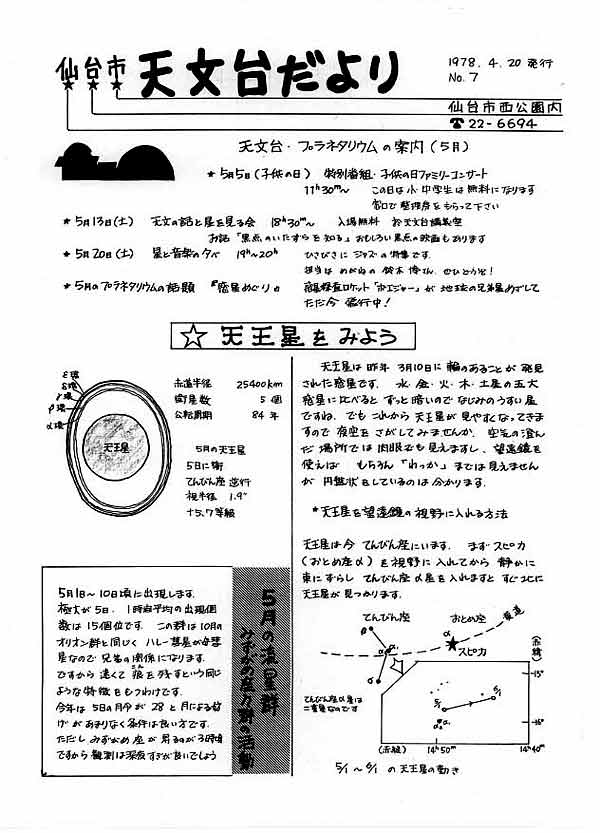 仙台市 天文台だより
1978. 4. 20 発行
No. 7
仙台市西公園内
☎22-6694
天文台・プラネタリウムの案内(5月)
★5月5日(子供の日) 特別番組・子供の日ファミリーコンサート
11h30m〜 この日は小・中学生は無料になります
窓口で整理券をもらって下さい
★5月13日(土) 天文の話と星を見る会 18h30m〜 入場無料 於天文台講義室
お話「黒点のいたずらを知る」おもしろい黒点の映画もあります
★5月20日(土) 星と音楽の夕べ 19h〜20h ひさびさに ジャズの特集です.
担当は めがねの 鈴木 博さん. ぜひどうぞ!
★5月のプラネタリウムの話題 『惑星めぐり』 惑星探査ロケット「ボエジャー」が 地球の兄弟星めざして
ただ今 飛行中!
☆ 天王星をみよう
ε環
δ環
γ環
β環
α環
天王星
赤道半径 25400km
衛星数 5個
公転周期 84年
5月の天王星
5日に衝
てんびん座 逆行
視半径 1.9"
+5.7等級
天王星は昨年 3月10日に 輪のあることが 発見
された惑星です. 水・金・火・木・土星の五大
惑星に比べると ずっと暗いので なじみのうすい星
ですね. でも これから 天王星が 見やすくなってきま
すので 夜空を さがしてみませんか. 空気の澄ん
だ 場所では 肉眼でも 見えますし、望遠鏡を
使えば もちろん「わっか」までは見えません
が 円盤状をしているのは分かります.
*天王星を望遠鏡の視野に入れる方法
天王星は今 てんびん座にいます. まず スピカ
(おとめ座α)を視野に入れてから 静かに
東にずらし てんびん座α星を入れますと すぐ北に
天王星が 見つかります.
5月の流星群
みずがめ座η群の活動
5月1日〜10日頃に出現します.
極大が5日. 1時間平均の出現個
数は 15個位です. この群は 10月の
オリオン群と同じく ハレー彗星が母彗
星なので 兄弟の関係になります.
ですから 速くて 痕を残すという同じ
ような特徴を もつわけです.
こん
今年は 5日の月令が 28と月による妨
げが あまりなく 条件は良い方です.
ただし みずがめ座が 昇るのが 3時頃
ですから 観測は深夜すぎが良いでしょう
てんびん座 おとめ座 黄道
β
α
α
スピカ
σ
てんびん座α星は
二重星なのです
(赤緯)
-15°
-16°
5/1
6/1
α₂ α₁
(赤経) 14h50m 14h40m
5/1 〜 6/1 の天王星の動き